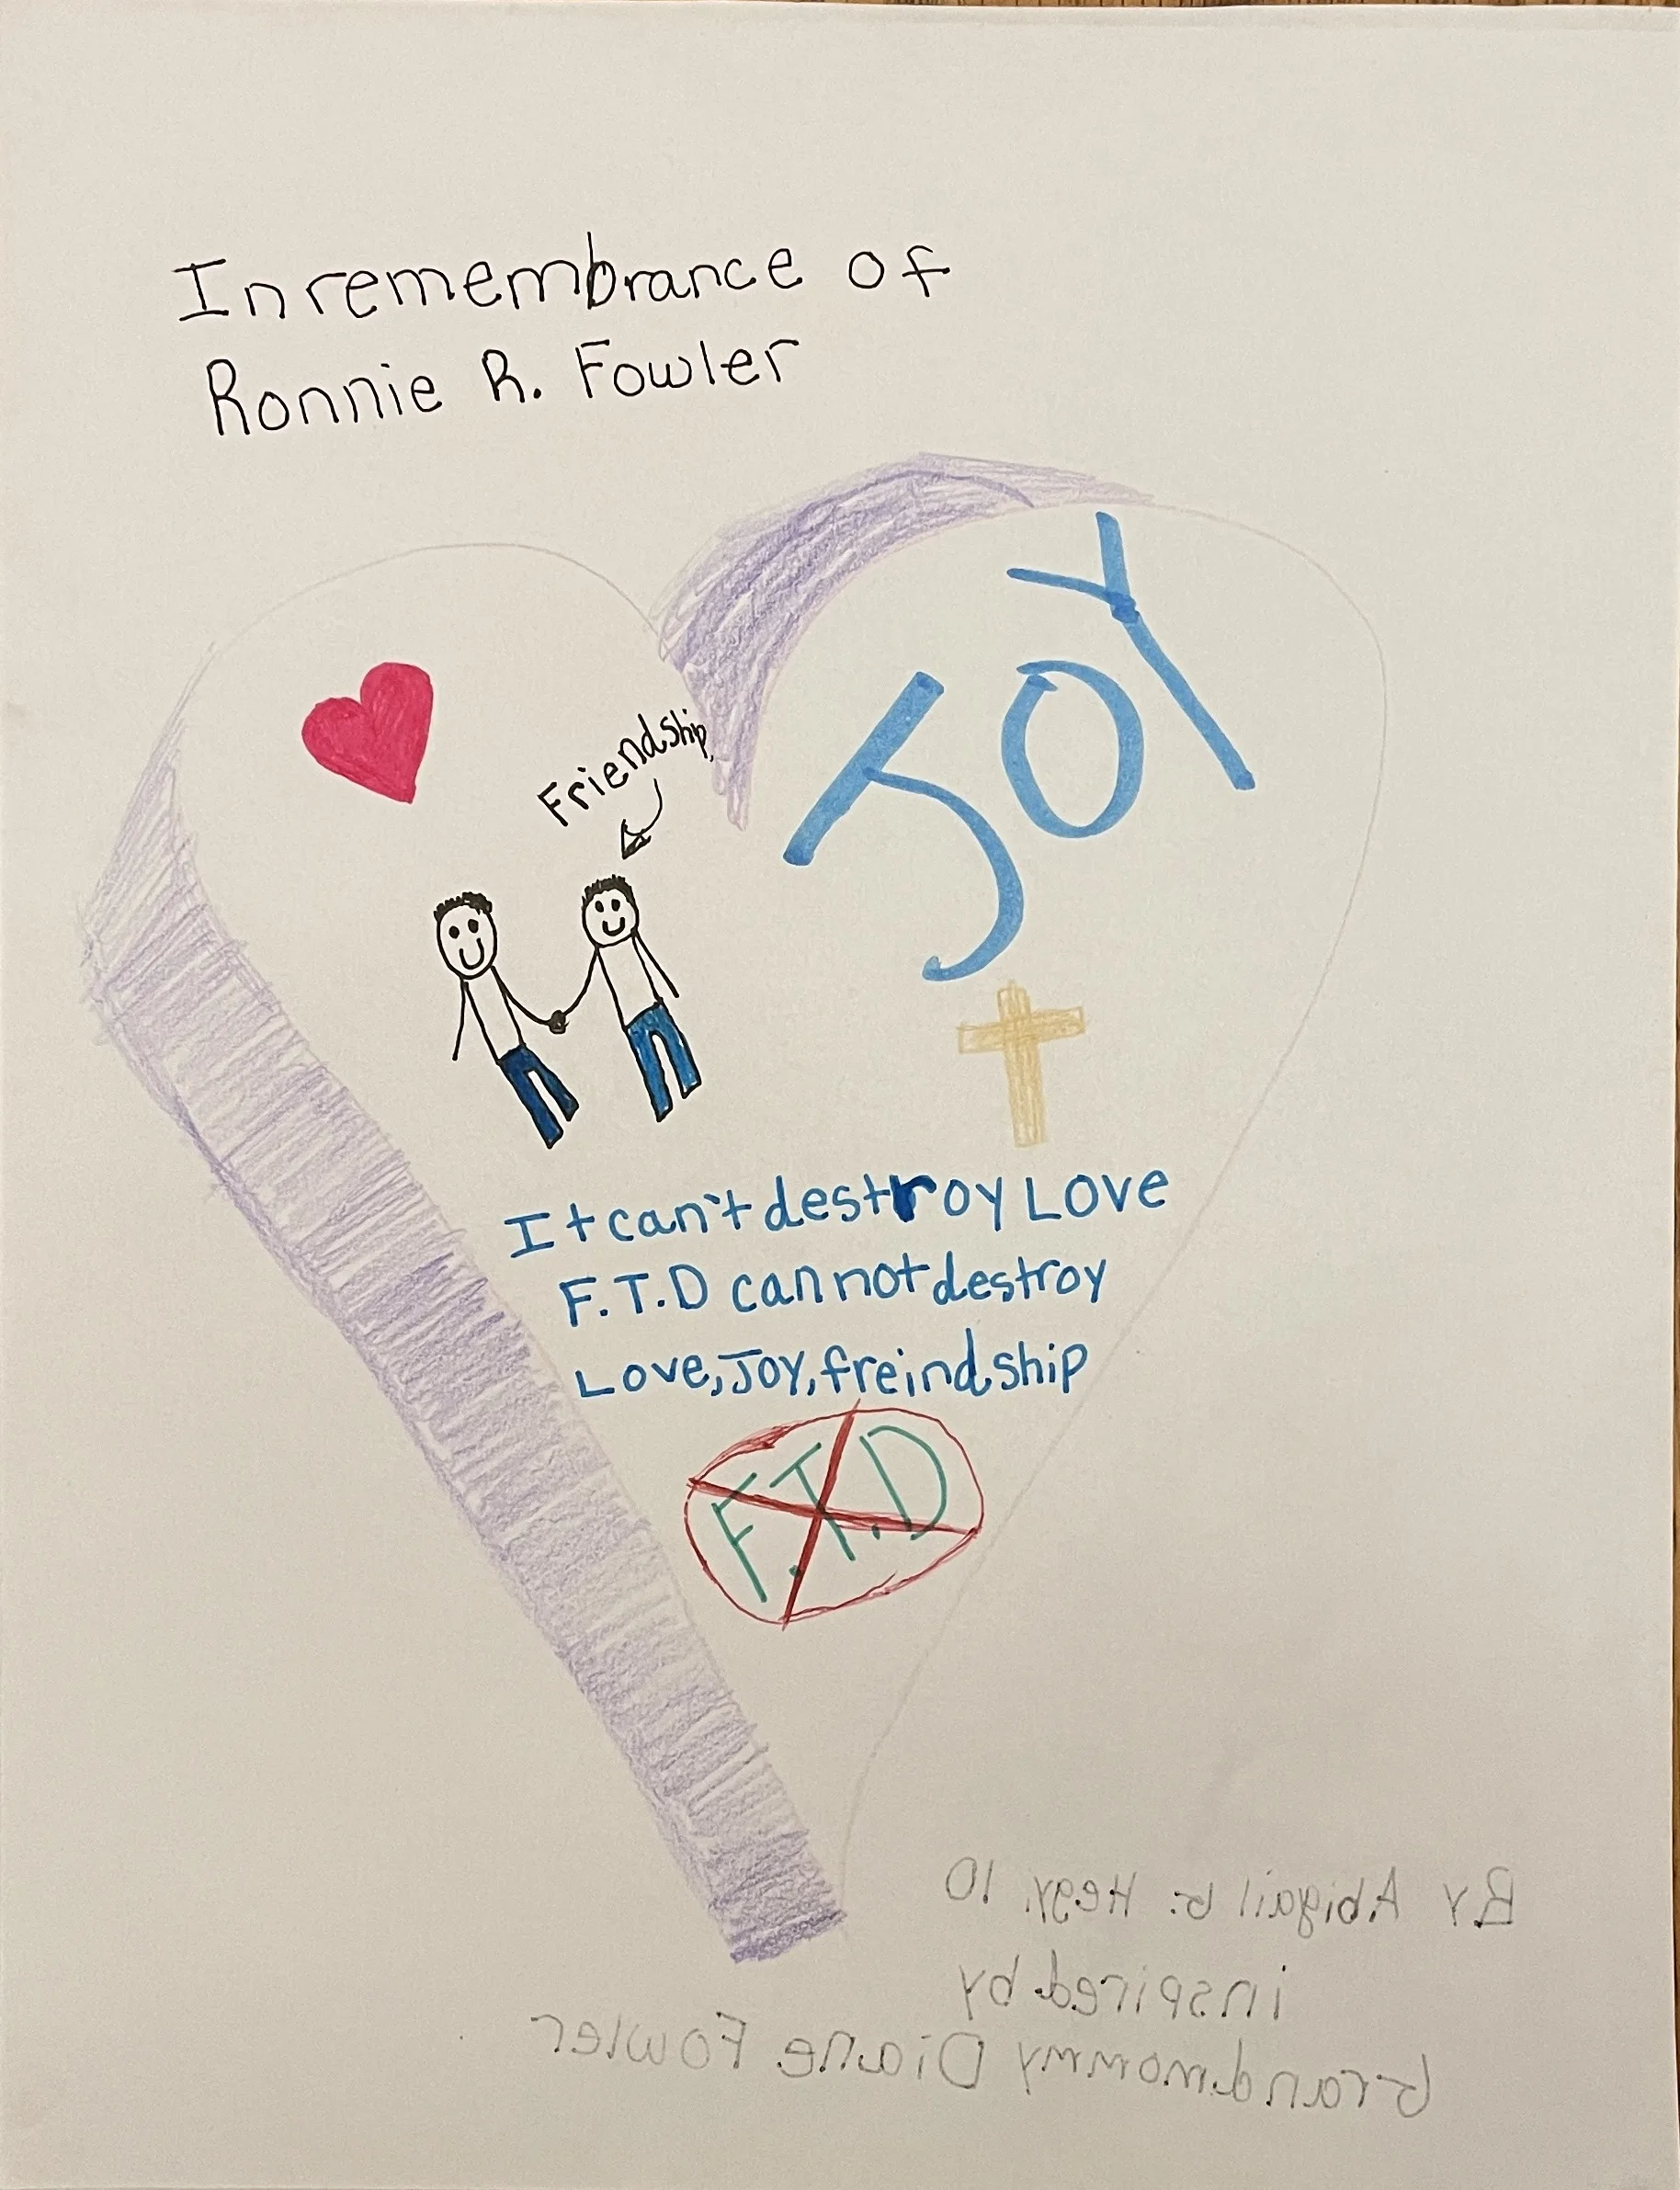 In remembrance of
Ronnie R. Fowler
JOY
Friendship
It can't destroy LOVE
F.T.D cannot destroy
Love, Joy, freindship
F.T.D
By Abigail G. Hegy, 10
inspired by
Grandmommy Diane Fowler